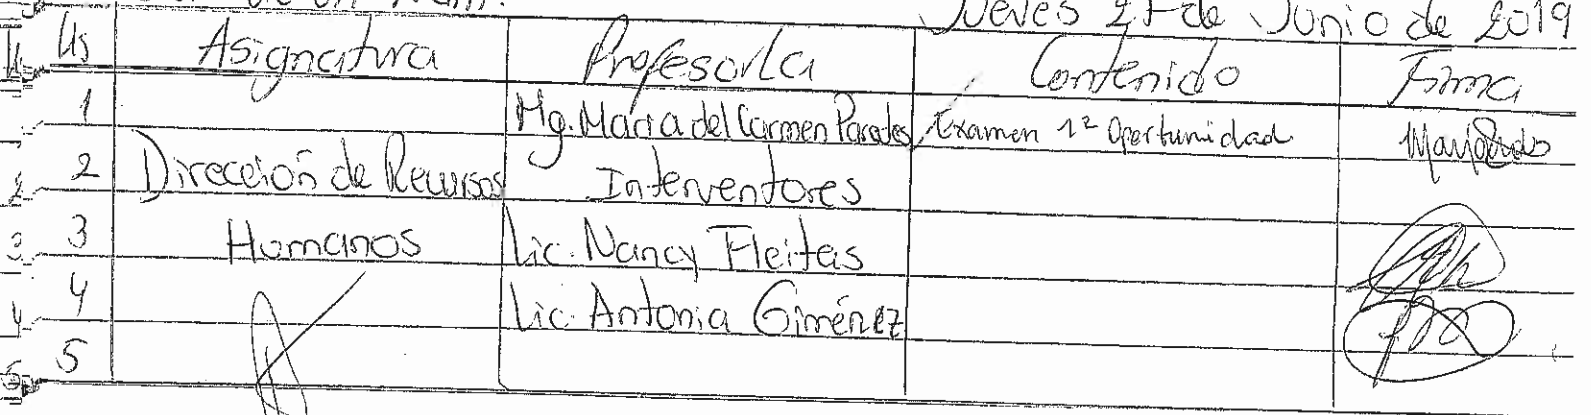 Jueves 27 de Junio de 2019
Hs Asignatura Profesor/a Contenido Firma
1 Mg. María del Carmen Paredes Examen 1ª Oportunidad
2 Dirección de Recursos Interventores
3 Humanos Lic. Nancy Fleitas
4 Lic. Antonia Giménez
5